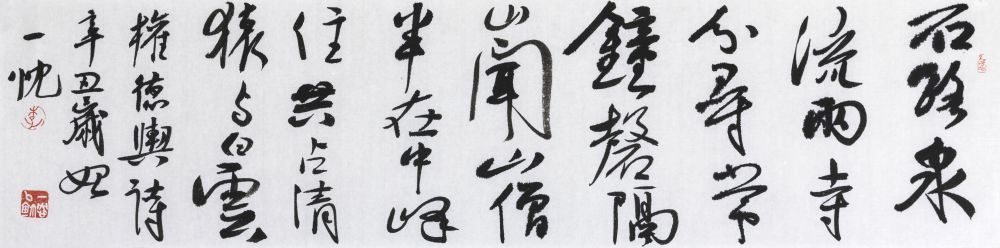 石路泉
流兩寺
分尋常
鐘磬隔
山聞山僧
半在中峰
住共占清
猿与白雲
權德輿詩
辛丑歲始
一忱
李